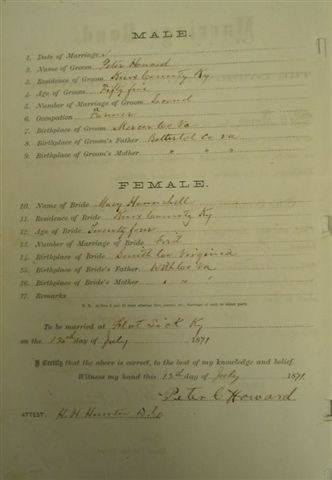 MALE.
1. Date of Marriage
2. Name of Groom Peter Howard
3. Residence of Groom Knox County Ky
4. Age of Groom Fifty five
5. Number of Marriage of Groom Second
6. Occupation Farmer
7. Birthplace of Groom Mercer Co Va
8. Birthplace of Groom's Father Bottertot Co Va
9. Birthplace of Groom's Mother " " "
FEMALE.
10. Name of Bride Mary
11. Residence of Bride Knox County Ky
12. Age of Bride
13. Number of Marriage of Bride
14. Birthplace of Bride Smith Co Virginia
15. Birthplace of Bride's Father. Co Va
16. Birthplace of Bride's Mother " " "
17. Remarks
To be married at Flat Lick Ky
on the 13th day of July 1871
I Certify that the above is correct, to the best of my knowledge and belief.
Witness my hand this 12th day of July 1871.
Peter C Howard
ATTEST: H. H. Hunter D.C.